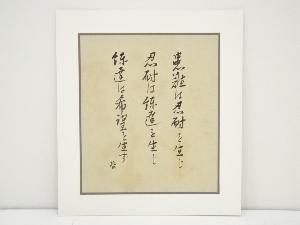 患難は忍耐を生じ
忍耐は練達を生じ
練達は希望を生ず